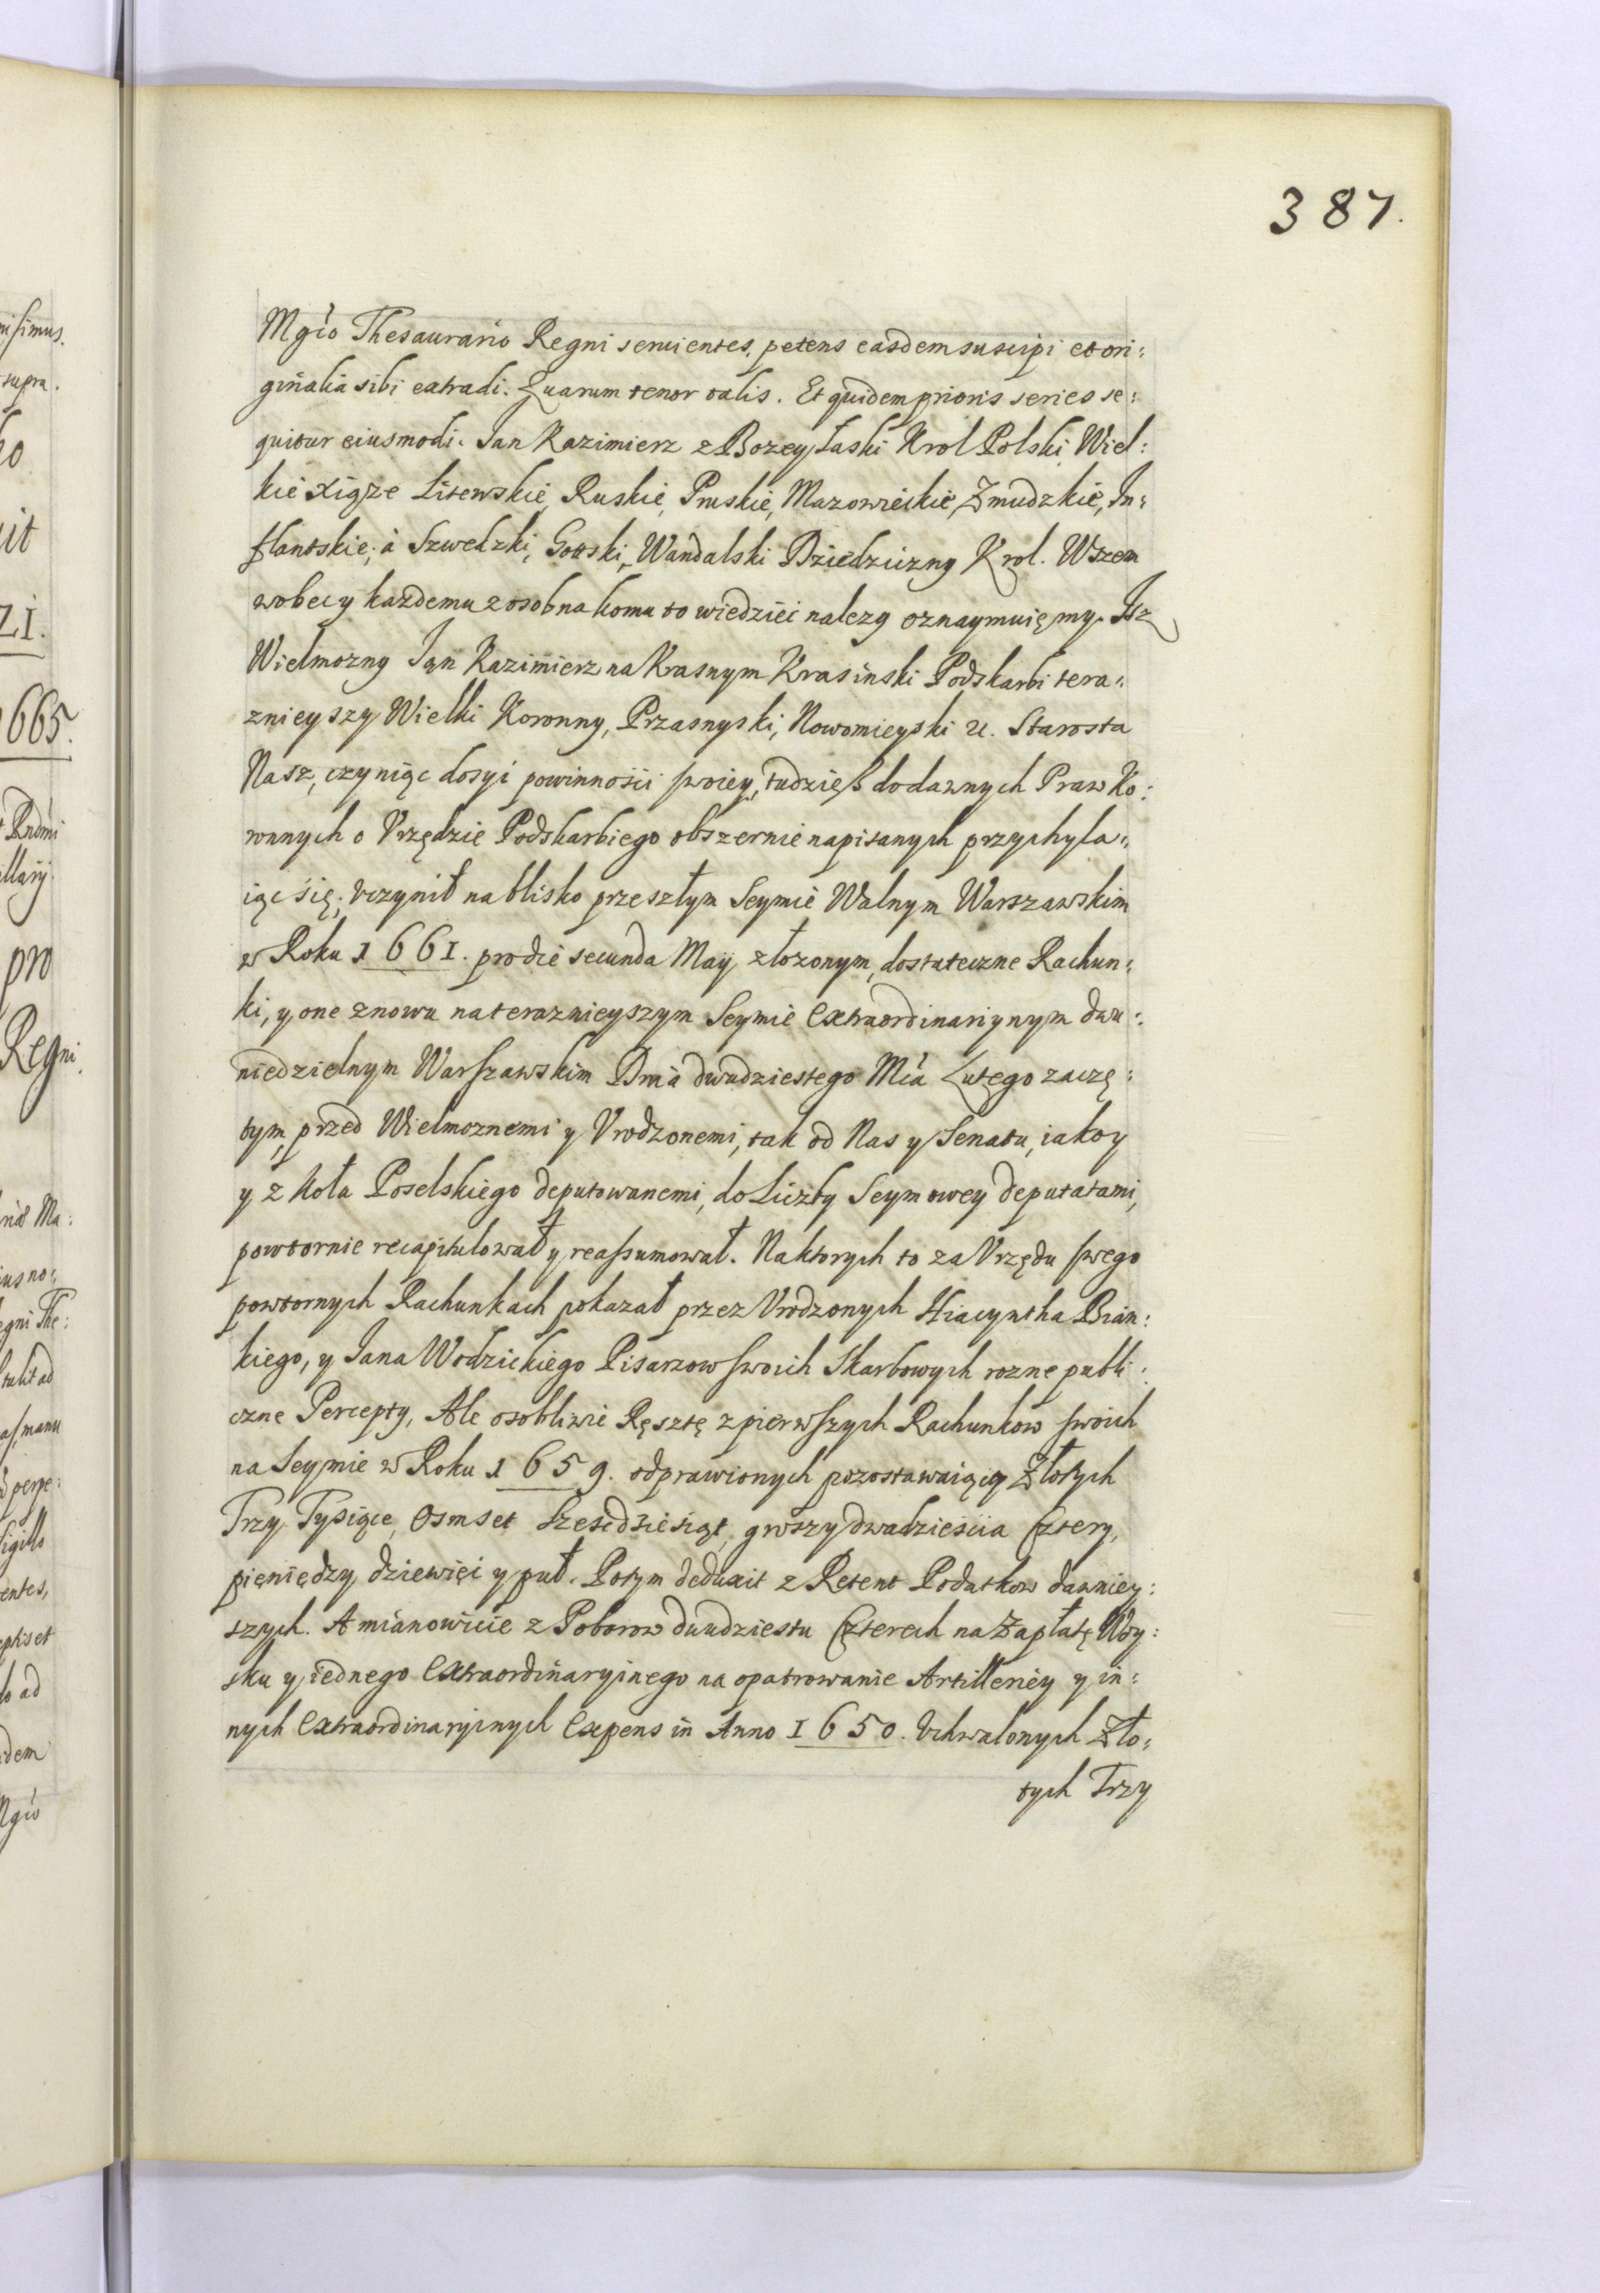 387.
Mgio Thesaurario Regni seruientes, petens easdem suscipi et ori:
ginalia sibi extradi. Quarum tenor talis. Et quidem prioris series se:
quitur eiusmodi. Jan Kazimierz z Bozey Łaski Krol Polski Wiel:
kie Xiąze Litewskie, Ruskie, Pruskie, Mazowieckie, Zmudzkie, In:
flantskie, à Szwedzki, Gottski, Wandalski Dziedziczny Krol. Wszem
wobec y kazdemu z osobna komu to wiedzieć nalezy oznaymuięmy. Isz
Wielmozny Jan Kazimierz na Krasnym Krasinski Podskarbi tera:
znieyszy Wielki Koronny, Przasnyski, Nowomieyski &c. Starosta
Nasz, czyniąc dosyć powinności swoiey, tudzieß do dawnych Praw Ko:
ronnych o Vrzędzie Podskarbiego obszernie napisanych przychyla:
iąc się, vczynił na blisko przeszłym Seymie Walnym Warszawskim
w Roku 1661. pro die secunda Maij złozonym, dostateczne Rachun:
ki, y one znowu na teraznieyszym Seymie Extraordinariynym dwu:
niedzielnym Warszawskim Dnia dwudziestego Mca Lutego zaczę:
tym, przed Wielmoznemi y Vrodzonemi, tak od Nas y Senatu, iako y
y z Koła Poselskiego deputowanemi, do Liczby Seymowey deputatami,
powtornie recapitulował y reassumował. Na ktorych to za Vrzędu swego
powtornych Rachunkach pokazał przez Vrodzonych Hiacyntha Bian:
kiego, y Jana Wodzickiego Pisarzow swoich Skarbowych rozne publi:
czne Percepty, Ale osobliwie Ręsztę z pierwszych Rachunkow swoich
na Seymie w Roku 1659. odprawionych pozostawaiący Złotych
Trzy Tysiące Osmset Szescdziesiąt, groszy dwadzieścia Cztery,
pięniędzy dziewięć y puł. Potym deduxit z Retent Podatkow dawniey:
szych. A mianowicie z Poborow dwudziestu Czterech na Zapłatę Woy:
sku y iednego Extraordinaryinego na opatrowanie Artilleriey y in:
nych Extraordinaryinych Expens in Anno 1650. Vchwalonych Zło:
tych Trzy